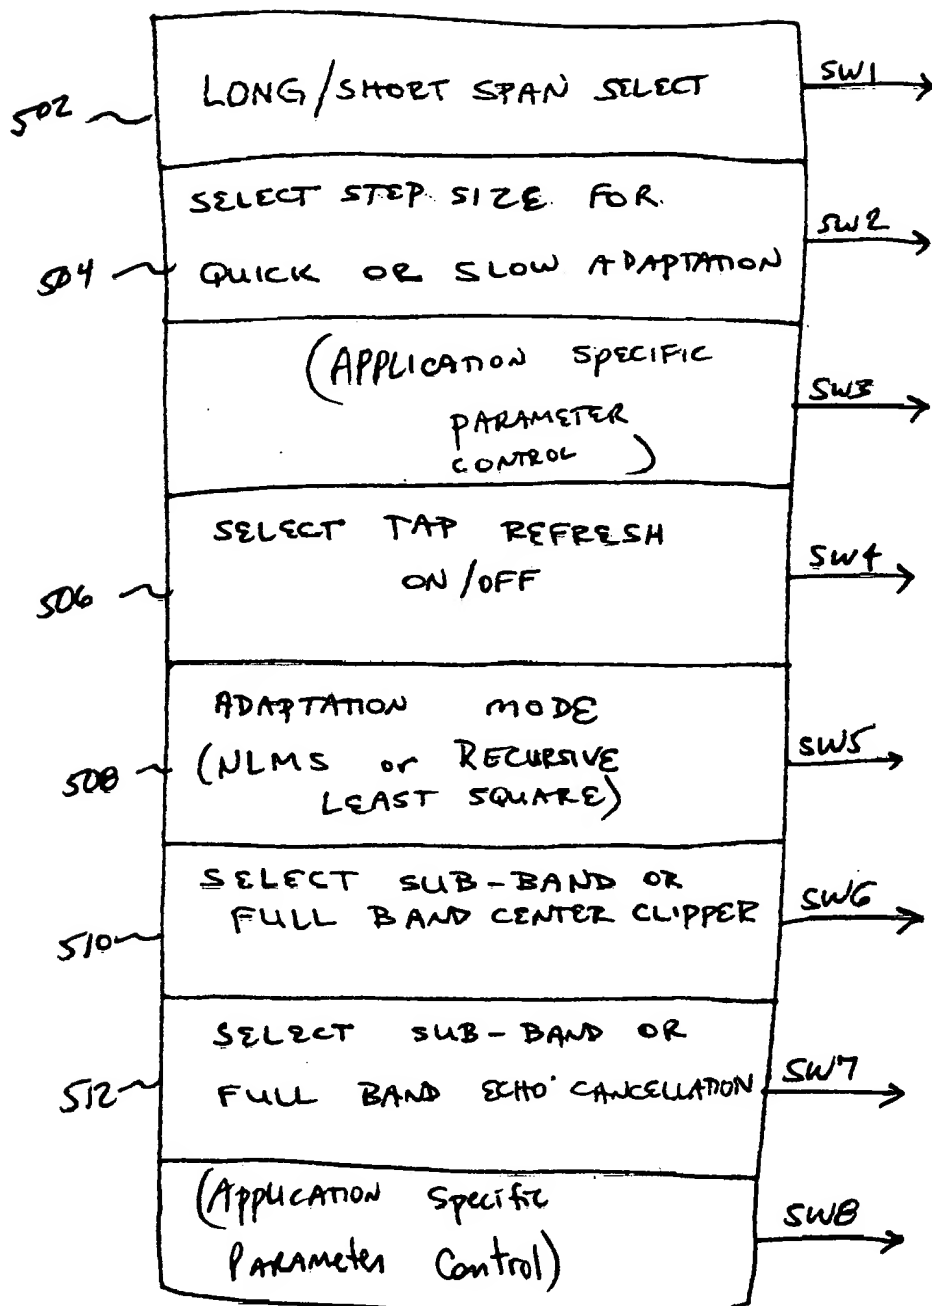 LONG/SHORT SPAN SELECT
SW1
502
SELECT STEP SIZE FOR
SW2
504
QUICK OR SLOW ADAPTATION
(APPLICATION SPECIFIC
SW3
PARAMETER
CONTROL)
SELECT TAP REFRESH
ON/OFF
SW4
506
ADAPTATION MODE
SW5
508
(NLMS or RECURSIVE
LEAST SQUARE)
SELECT SUB-BAND OR
FULL BAND CENTER CLIPPER
SW6
510
SELECT SUB-BAND OR
SW7
512
FULL BAND ECHO CANCELLATION
(APPLICATION Specific
SW8
PARAMETER Control)